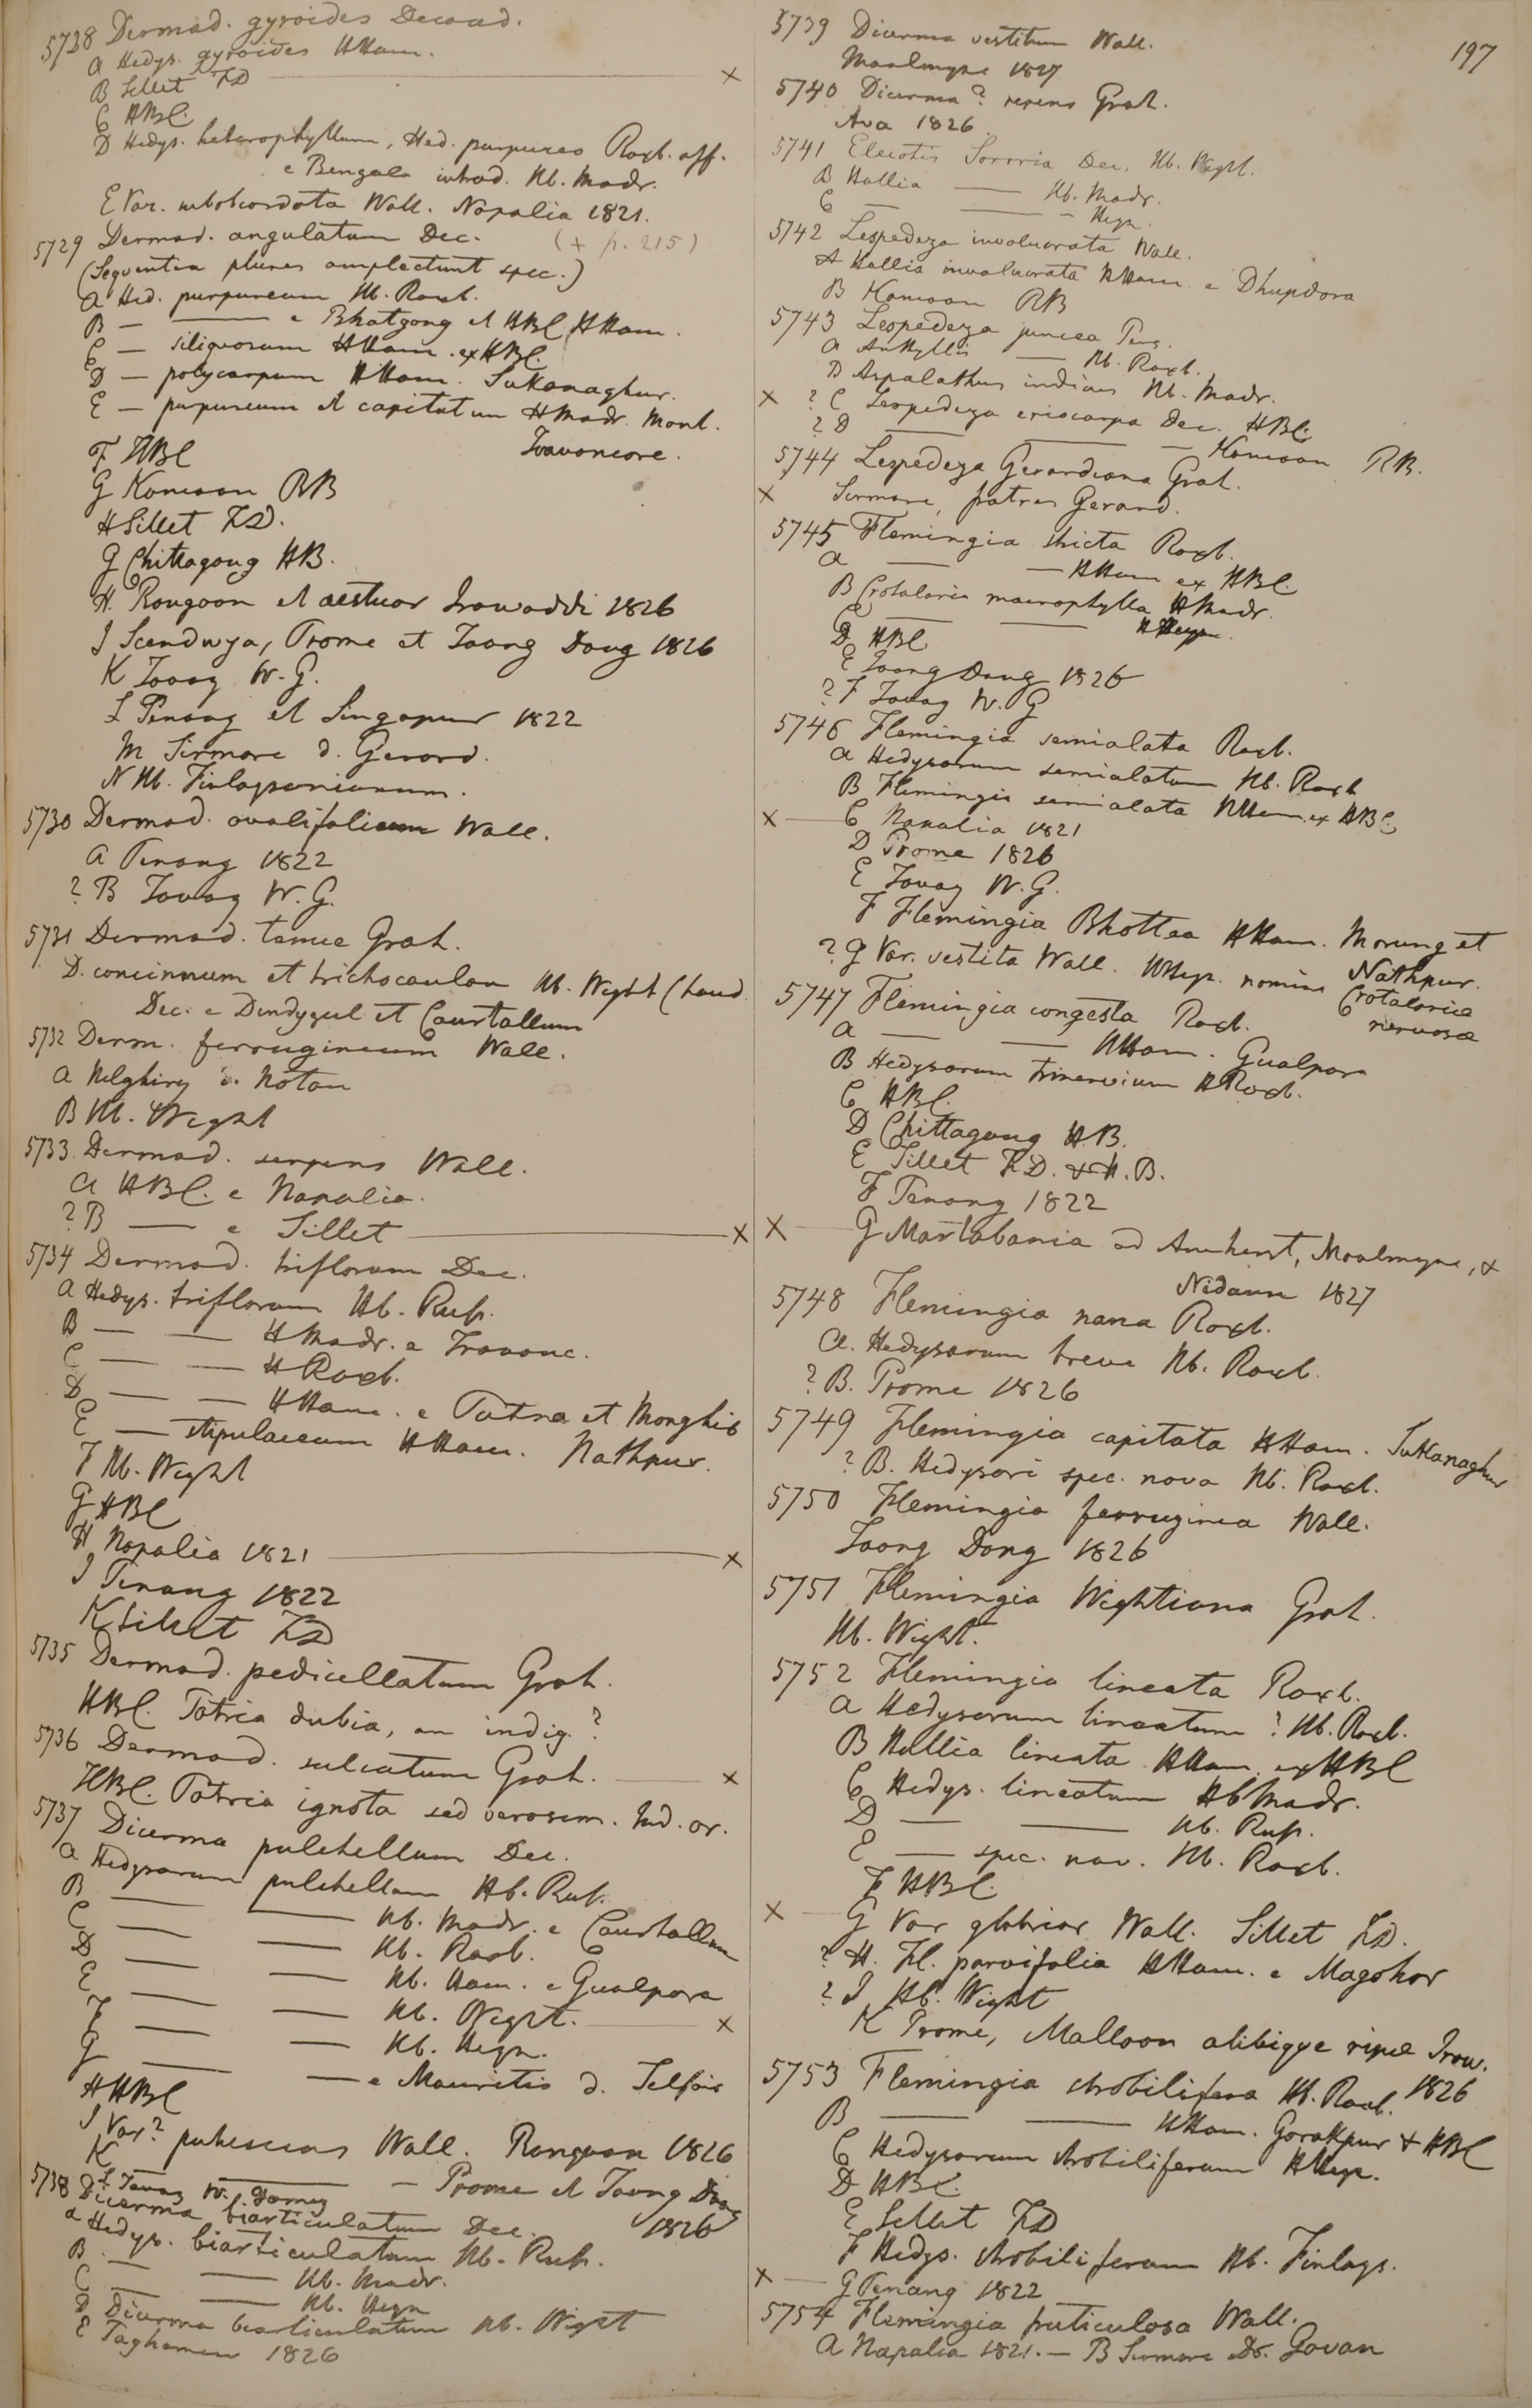 197
5728 Desmod. gyroides Decand.
a Hedys. gyroides HHam.
B Sillet FD ——— x
C HBC.
D Hedys. heterophyllum, Hed. purpureo Roxb. aff.
e Bengala introd. Hb. Madr.
E Var. subobcordata Wall. Napalia 1821.
5729 Desmod. angulatum Dec. (+ p. 215)
(Sequentia plures amplectunt spec.)
a Hed. purpureum Hb. Roxb.
B — —— e Bhatgong et HBC HHam.
C — siliquosum HHam. ex HBC.
D — polycarpum HHam. Sukanaghur.
E — purpureum et capitatum HMadr. Mont.
Travancore.
F HBC
G Kamaon RB
H Sillet FD.
G Chittagong HB.
H. Rangoon et aestuar Irawaddi 1826
I Seendwya, Prome et Taong Dong 1826
K Tavoy W. G.
L Penang et Singapur 1822
M Sirmore d. Gerard.
N Hb. Finlaysonianum.
5730 Desmod. ovalifolium Wall.
a Penang 1822
? B Tavoy W. G.
5731 Desmod. tenue Grah.
D. concinnum et trichocaulon Hb. Wight (haud
Dec. e Dindygul et Courtallum
5732 Desm. ferrugineum Wall.
a Nelghiry d. Noton
B Hb. Wight
5733 Desmod. serpens Wall.
a HBC. e Napalia.
? B — e Sillet ——— x
5734 Desmod. triflorum Dec.
a Hedys. triflorum Hb. Russ.
B — — HMadr. e Travanc.
C — — HRoxb.
D — — HHam. e Patna et Monghir
E — stipulaceum HHam. Nathpur.
F Hb. Wight
G HBC
H Napalia 1821 ——— x
I Penang 1822
K Sillet FD
5735 Desmod. pedicellatum Grah.
HBC. Patria dubia, an indig.?
5736 Desmod. sulcatum Grah. —— x
HBC. Patria ignota sed verosim. Ind. or.
5737 Dicerma pulchellum Dec.
a Hedysarum pulchellum Hb. Russ.
B — — Hb. Madr. e Courtallum
C — — Hb. Roxb.
D — — Hb. Ham. e Gualpara
E — — Hb. Wight. —— x
F — — Hb. Heyn.
G — — e Mauritio d. Telfair
H HBC
I Var? pubescens Wall. Rangoon 1826
K —— — Prome et Taong Dong
1826
L Tavoy W. Gomez
5738 Dicerma biarticulatum Dec.
a Hedys. biarticulatum Hb. Russ.
B — — Hb. Madr.
C — — Hb. Heyn
D Dicerma biarticulatum Hb. Wight
E 1826
5739 Dicerma vestitum Wall.
Moalmyne 1827
5740 Dicerma? repens Grah.
Ava 1826
5741 Eleiotis Sororia Dec. Hb. Wight.
B Hallia —— Hb. Madr.
C — —— – Heyn.
5742 Lespedeza involucrata Wall.
A Hallia involucrata HHam e Dhupdora
B Kamaon RB
5743 Lespedeza juncea Pers.
a Anthyllis —— Hb. Roxb.
B Aspalathus indicus Hb. Madr.
x ? C Lespedeza eriocarpa Dec. HBC
? D —— —— — Kamaon RB.
5744 Lespedeza Gerardiana Grah.
x Sirmore, fratres Gerard.
5745 Flemingia stricta Roxb.
a —— — HHam ex HBC
B Crotalaria macrophylla HMadr.
C —— —— HHeyn.
D HBC
E Taong Dong 1826
? F Tavoy W. G
5746 Flemingia semialata Roxb.
a Hedysarum semialatum Hb. Roxb
B Flemingia semialata HHam. ex HBC
x — C Napalia 1821
D Prome 1826
E Tavoy W. G.
F Flemingia Bhottea HHam. Morung et
Nathpur.
? G Var. vestita Wall. HHeyn. nomine Crotalariae
nervosae
5747 Flemingia congesta Roxb.
a —— —— HHam. Gualpara
B Hedysarum trinervium HRoxb.
C HBC.
D Chittagong HB.
E Sillet FD. & H. B.
F Penang 1822
x — G Martabania ad Amherst, Moalmyne, &
Nidaun 1827
5748 Flemingia nana Roxb.
a. Hedysarum breve Hb. Roxb.
? B. Prome 1826
5749 Flemingia capitata HHam. Sukanaghur
? B. Hedysari spec. nova Hb. Roxb.
5750 Flemingia ferruginea Wall.
Taong Dong 1826
5751 Flemingia Wightiana Grah.
Hb. Wight.
5752 Flemingia lineata Roxb.
a Hedysarum lineatum? Hb. Roxb.
B Hallia lineata HHam. ex HBC
C Hedys. lineatum Hb Madr.
D — —— Hb. Russ.
E — spec. nov. Hb. Roxb.
F HBC.
x — G Var glabrior Wall. Sillet FD.
? H. Fl. parvifolia HHam. e Magohor
? I Hb. Wight
K Prome, Malloon alibique ripae Iraw.
1826
5753 Flemingia strobilifera Hb. Roxb.
B —— —— HHam. Gorakpur & HBC
C Hedysarum strobiliferum HHeyn.
D HBC.
E Sillet FD
F Hedys. strobiliferum Hb. Finlays.
x — G Penang 1822
5754 Flemingia fruticulosa Wall.
a Napalia 1821. — B Sirmore Dr. Govan